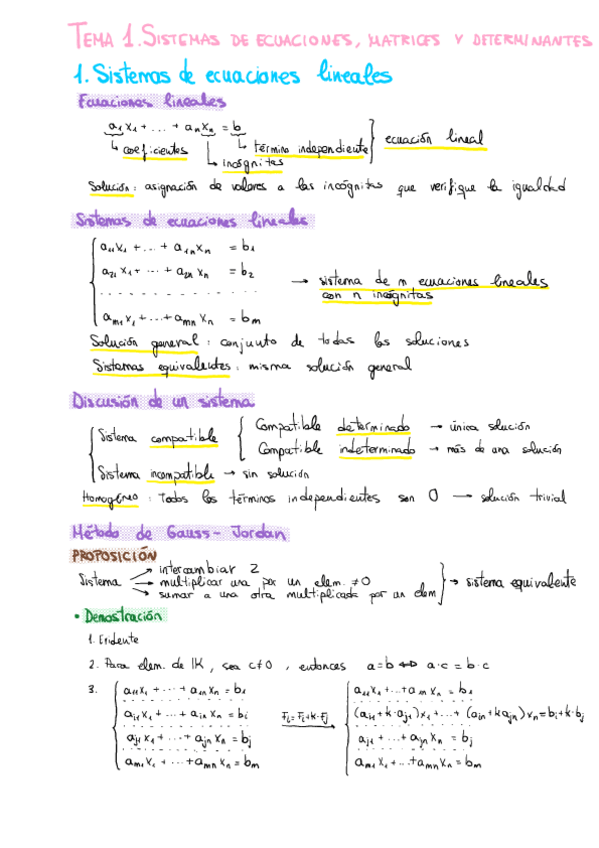 TEMA 1. SISTEMAS DE ECUACIONES, MATRICES Y DETERMINANTES
1. Sistemas de ecuaciones lineales
Ecuaciones lineales
a₁x₁ + ... + aₙxₙ = b
↳ coeficientes ↳ incógnitas ↳ término independiente } ecuación lineal
Solución: asignación de valores a las incógnitas que verifique la igualdad
Sistemas de ecuaciones lineales
a₁₁x₁ + ... + a₁ₙxₙ = b₁
a₂₁x₁ + ... + a₂ₙxₙ = b₂
- - - - - - - - - - → sistema de m ecuaciones lineales
con n incógnitas
aₘ₁x₁ + ... + aₘₙxₙ = bₘ
Solución general: conjunto de todas las soluciones
Sistemas equivalentes: misma solución general
Discusión de un sistema
Sistema compatible { Compatible determinado → única solución
Compatible indeterminado → más de una solución
Sistema incompatible → sin solución
Homogéneo: Todos los términos independientes son 0 → solución trivial
Método de Gauss-Jordan
PROPOSICIÓN
Sistema → intercambiar 2
→ multiplicar una por un elem. ≠0
→ sumar a una otra multiplicada por un elem } → sistema equivalente
• Demostración
1. Evidente
2. Para elem. de IK, sea c≠0, entonces a=b ⇔ a·c = b·c
3. a₁₁x₁ + ... + a₁ₙxₙ = b₁
aᵢ₁x₁ + ... + aᵢₙxₙ = bᵢ
aⱼ₁x₁ + ... + aⱼₙxₙ = bⱼ
aₘ₁x₁ + ... + aₘₙxₙ = bₘ
Fᵢ=Fᵢ+k·Fⱼ
a₁₁x₁ + ... + a₁ₙxₙ = b₁
(aᵢ₁+k·aⱼ₁)x₁ + ... + (aᵢₙ+kaⱼₙ)xₙ = bᵢ+k·bⱼ
aⱼ₁ + ... + aⱼₙxₙ = bⱼ
aₘ₁x₁ + ... + aₘₙxₙ = bₘ